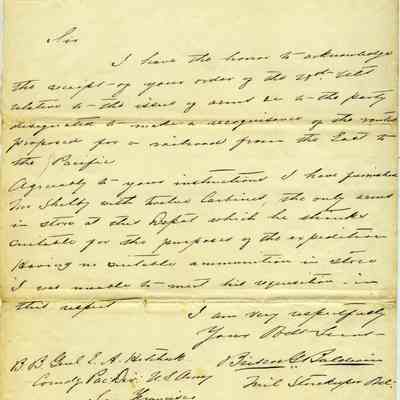 Sir
I have the honor to acknowledge
the receipt of your order of the 28th ult
relative to the issue of arms &c to the party
designated to make a recognisance of the route
proposed for a railroad from the East to
the Pacific
Agreeably to your instructions I have furnished
Mr Shelby with twelve Carbines, the only arms
in store at this Depot which he thinks
suitable for the purposes of the expedition
Having no suitable ammunition in store
I was unable to meet his requisition in
this respect
I am very respectfully
Your Obdt Servt
B. B. Genl E. A. Hitchcock
Comdg Pac Div. U S Army
San Francisco
Briscoe G Baldwin
Mil Storekeeper